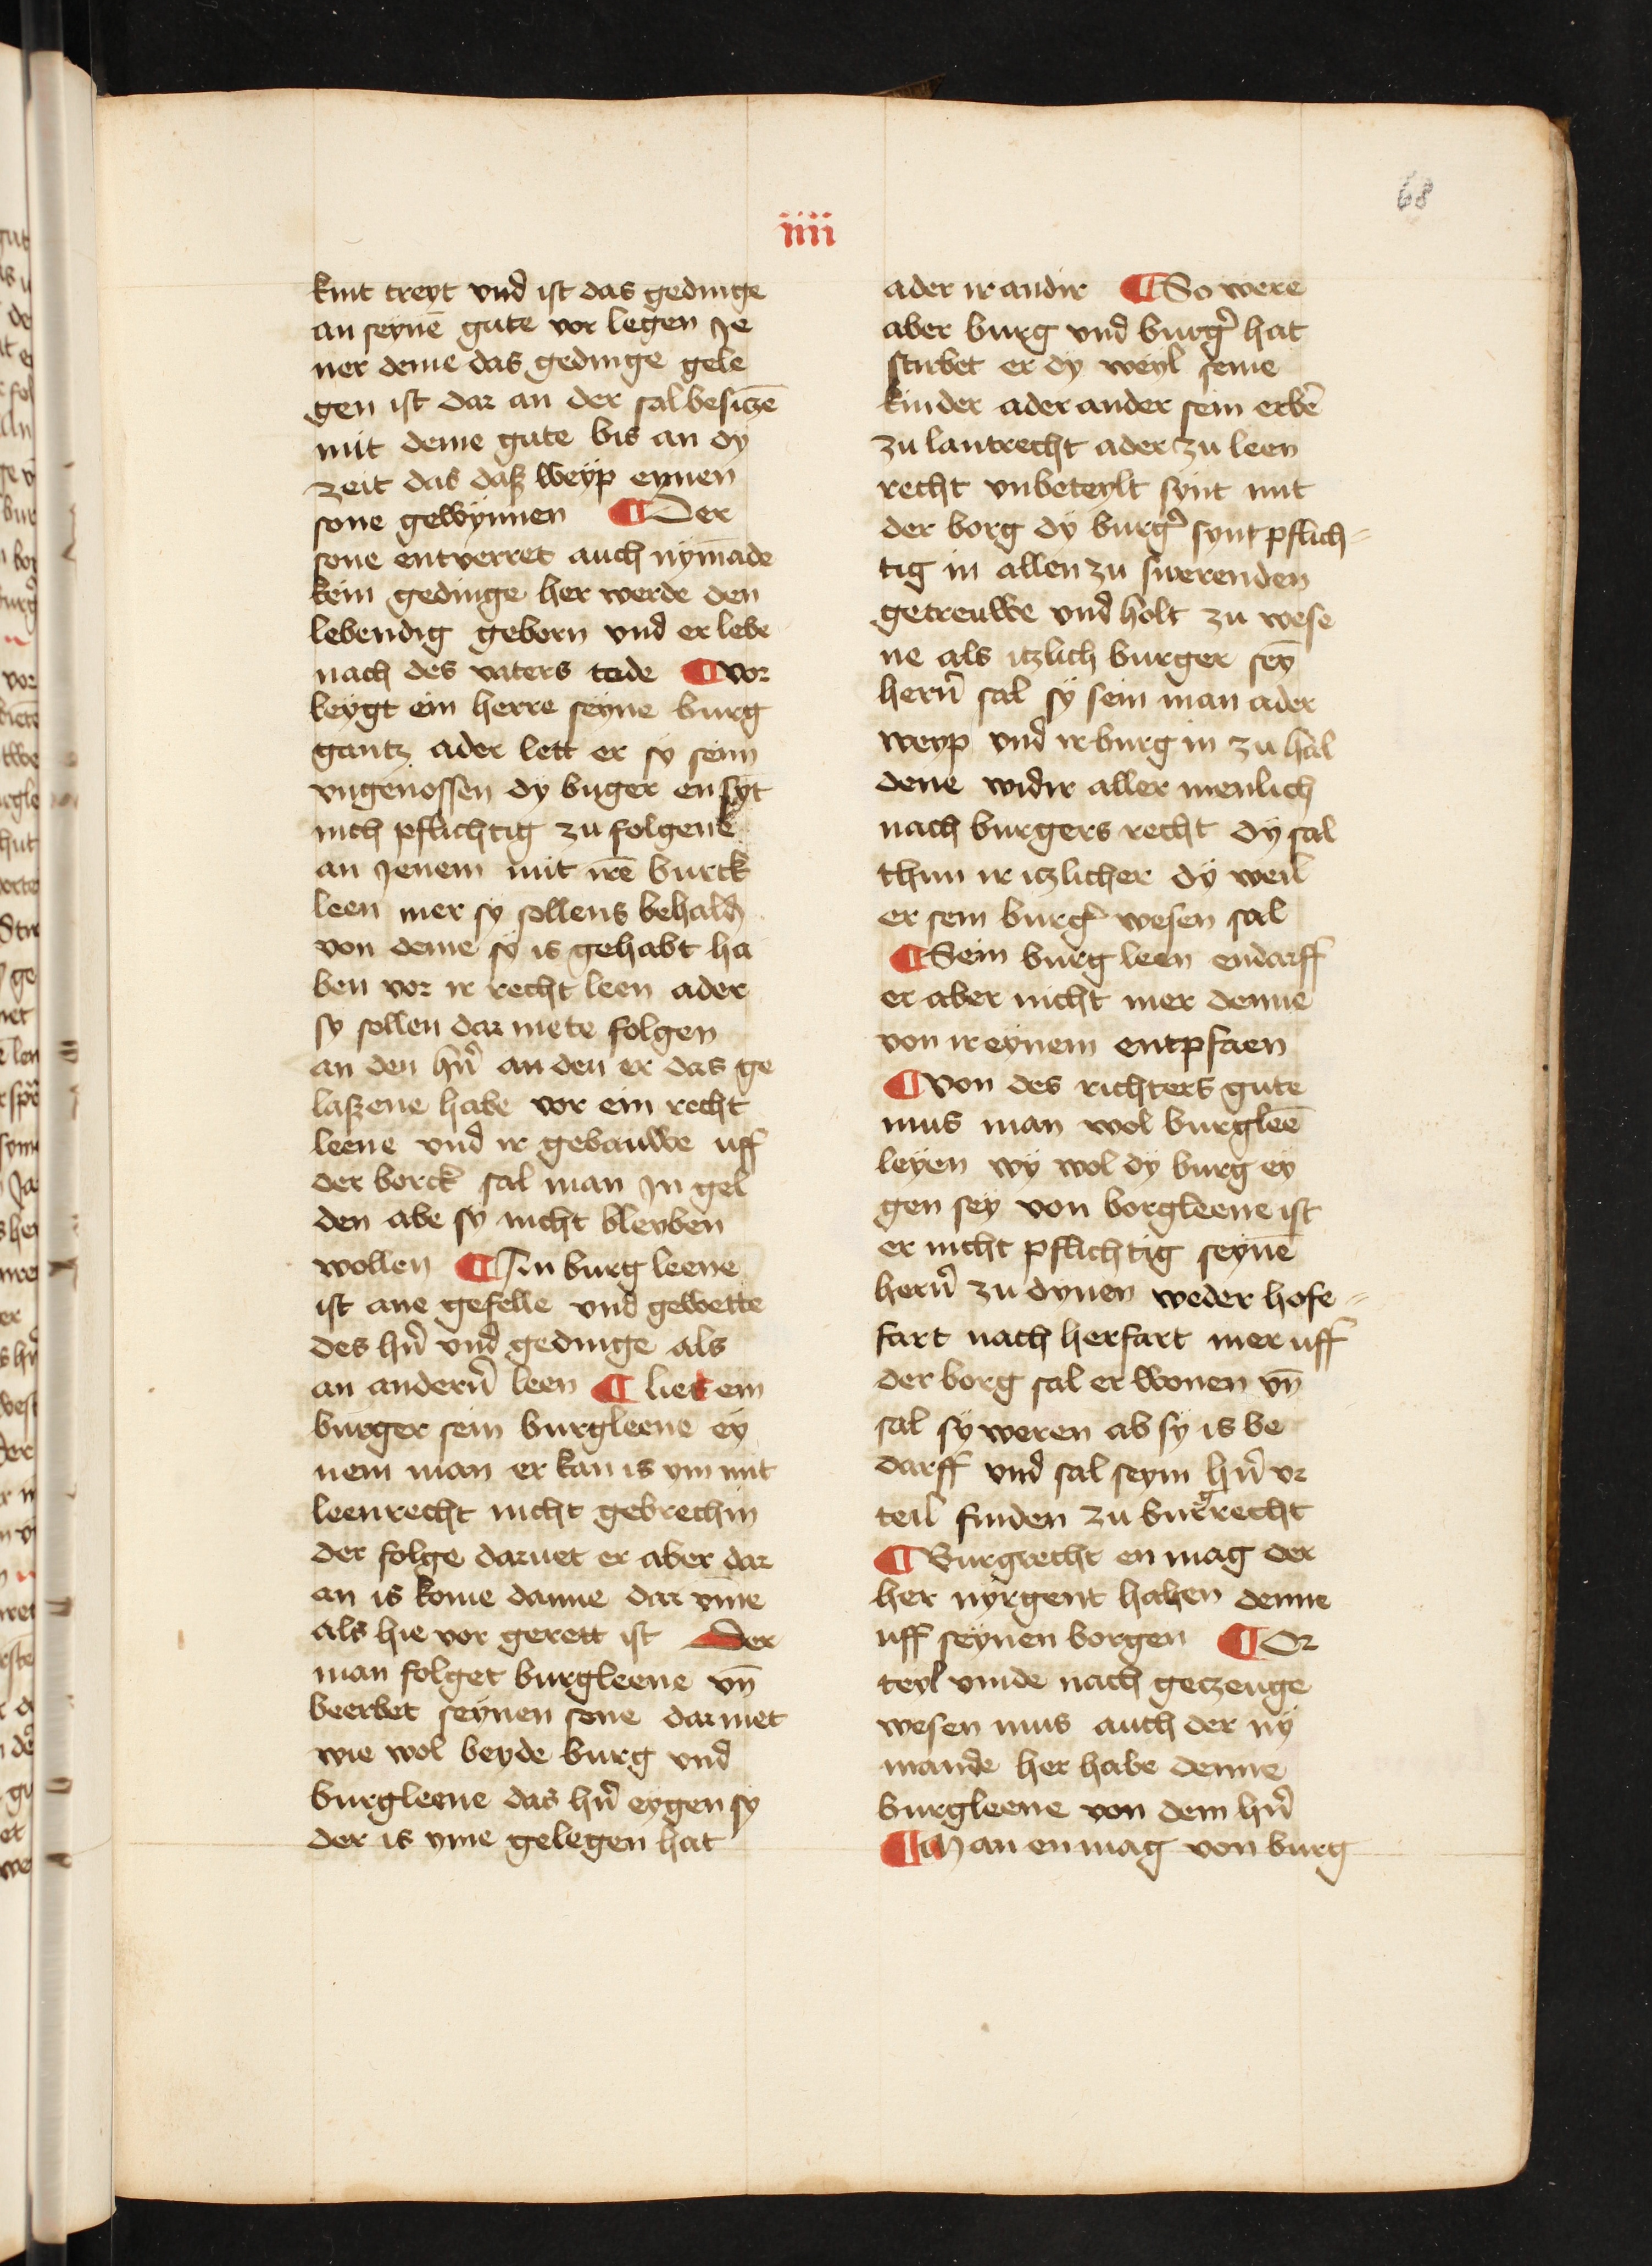 68
iiii
kint treyt vnd ist das gedinge
an seynē gute vor legen Je
ner deme das gedinge gele
gen ist dar an der sal besiczē
mit deme gute bis an dy
zeit das daß weyp eynen
sone gewynnen ¶ Der
sone entverret auch nymāde
kein gedinge her werde den
lebendig geborn vnd er lebe
nach des vaters tode ¶ vor
keygt ein herre seyne burg
gantz ader lett er sy seim
vngenossen dy buger en synt
nich pflichtig zu folgene
an Jenem mit irē burck
leen mer sy sollens behaldn̄
von deme sy is gehabt ha
ben vor ir recht leen ader
sy sollen dar mete folgen
an den hr̄n an den er das ge
laßene habe vor ein recht
leene vnd ir gebauwe uff
der borck sal man Jn gel
den abe sy nicht bleyben
wollen ¶ An burg leene
ist ane gefelle vnd gewette
des hr̄n vnd gedinge als
an andern̄ leen ¶ liet ein
burger sein burgleene ey
nem man er kan is ym mit
leenrecht nicht gebrechin
der folge daruet er aber dar
an is kome danne dar vme
als hie vor gerett ist Der
man folget burgleene vn̄
beerbet seynen sone dar met
wie wol beyde burg vnd
burgleene das hr̄n eygen sy
der is yme gelegen hat
ader ir andir ¶ So were
aber burg vnd burg̉ hat
stirbet er dy weyl seine
kinder ader ander sein erbē
zu lantrecht ader zu leen
recht vnbeteylt synt mit
der borg dy burg̉ synt pflich-
tig in allen zu swerenden
getreuwe vnd holt zu wese
ne als itzlich burger seȳ
hern̄ sal sy sein man ader
weyp vnd ir burg in zu hal
dene widir aller menlich
nach burgers recht dy sal
thun ir itzlicher dy weil
er sein burg̉ wesen sal
¶ Sein burg leen endarff
er aber nicht mer denne
von ir eynem entpfaen
¶ von des richters gute
mus man wol burgleē
leyen wy wol dy burg ey
gen sey von borgleene ist
er nicht pflichtig seynē
hern̄ zu dynen weder hofe-
fart nach herfart mer uff
der borg sal er wonen vn̄
sal sy weren ab sy is be
darff vnd sal seym hr̄n vr
teil finden zu burgrecht
¶ Burgrecht en mag der
her nyrgent haben denne
uff seynen borgen ¶ Or
teyl vinde nach geczeuge
wesen mus auch der ny
mande her habe denne
burgleene von dem hr̄n
¶ Man en mag von burg